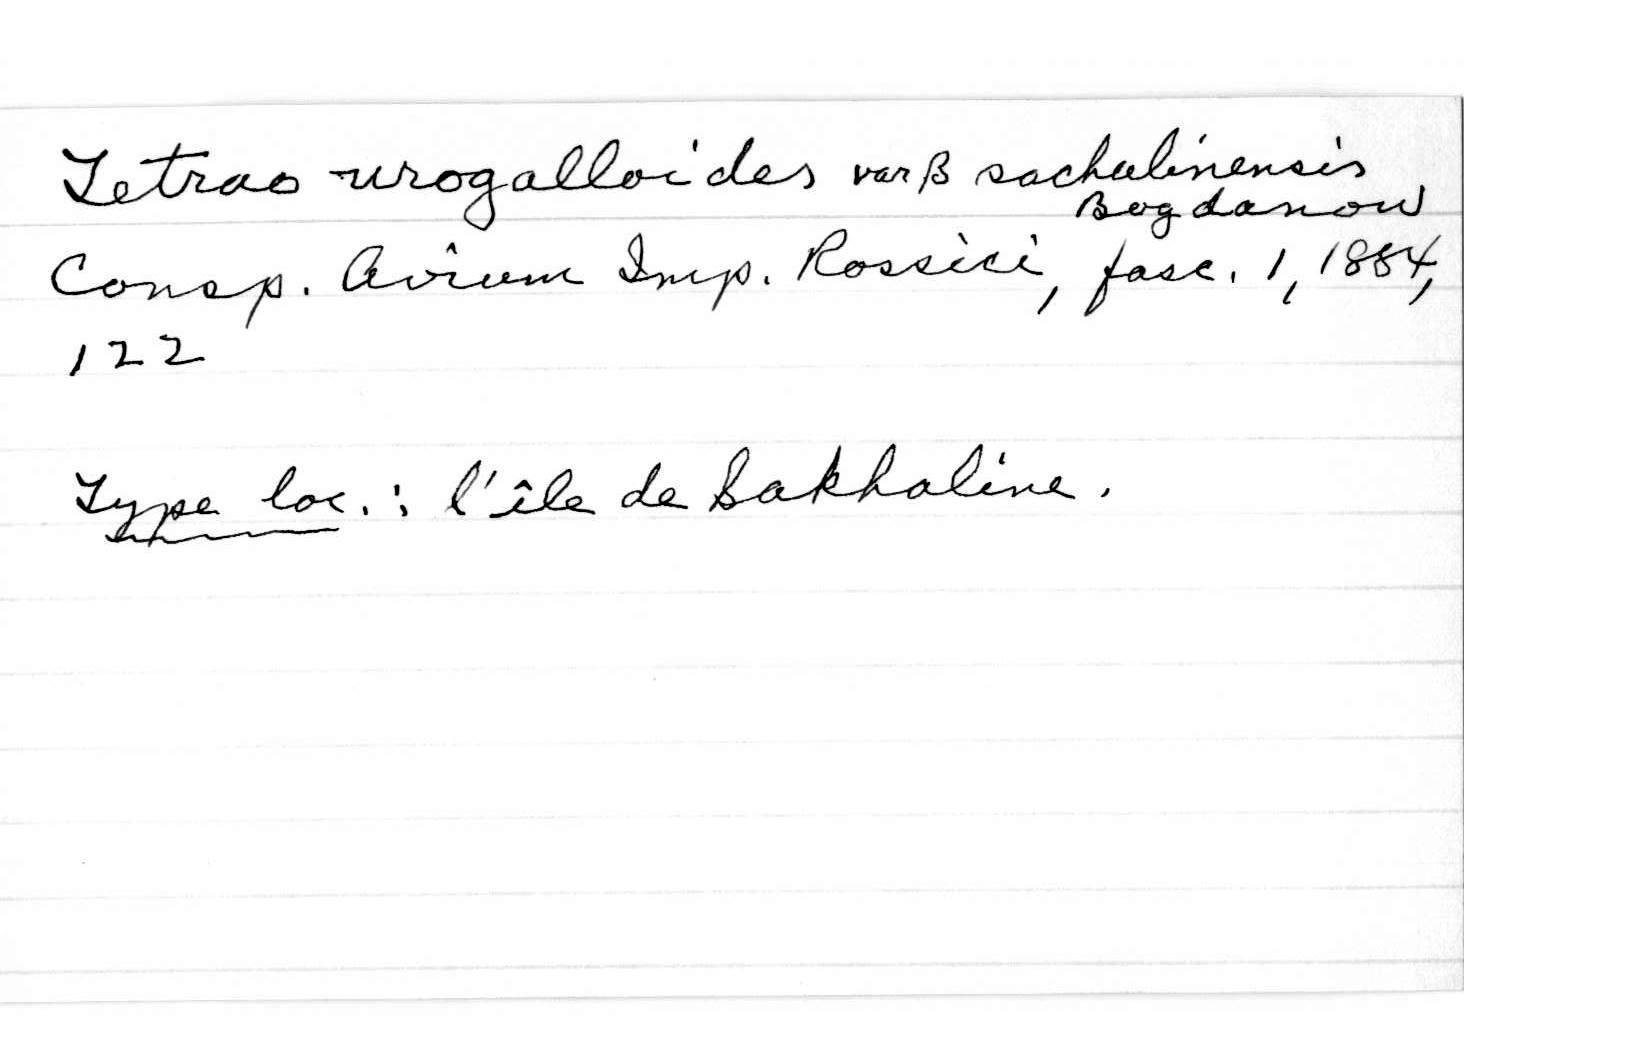 Tetrao urogalloides var β sachalinensis
Bogdanow
Consp. Avium Imp. Rossici, fasc. 1, 1884,
122
Type loc.: l'île de Sakhaline.